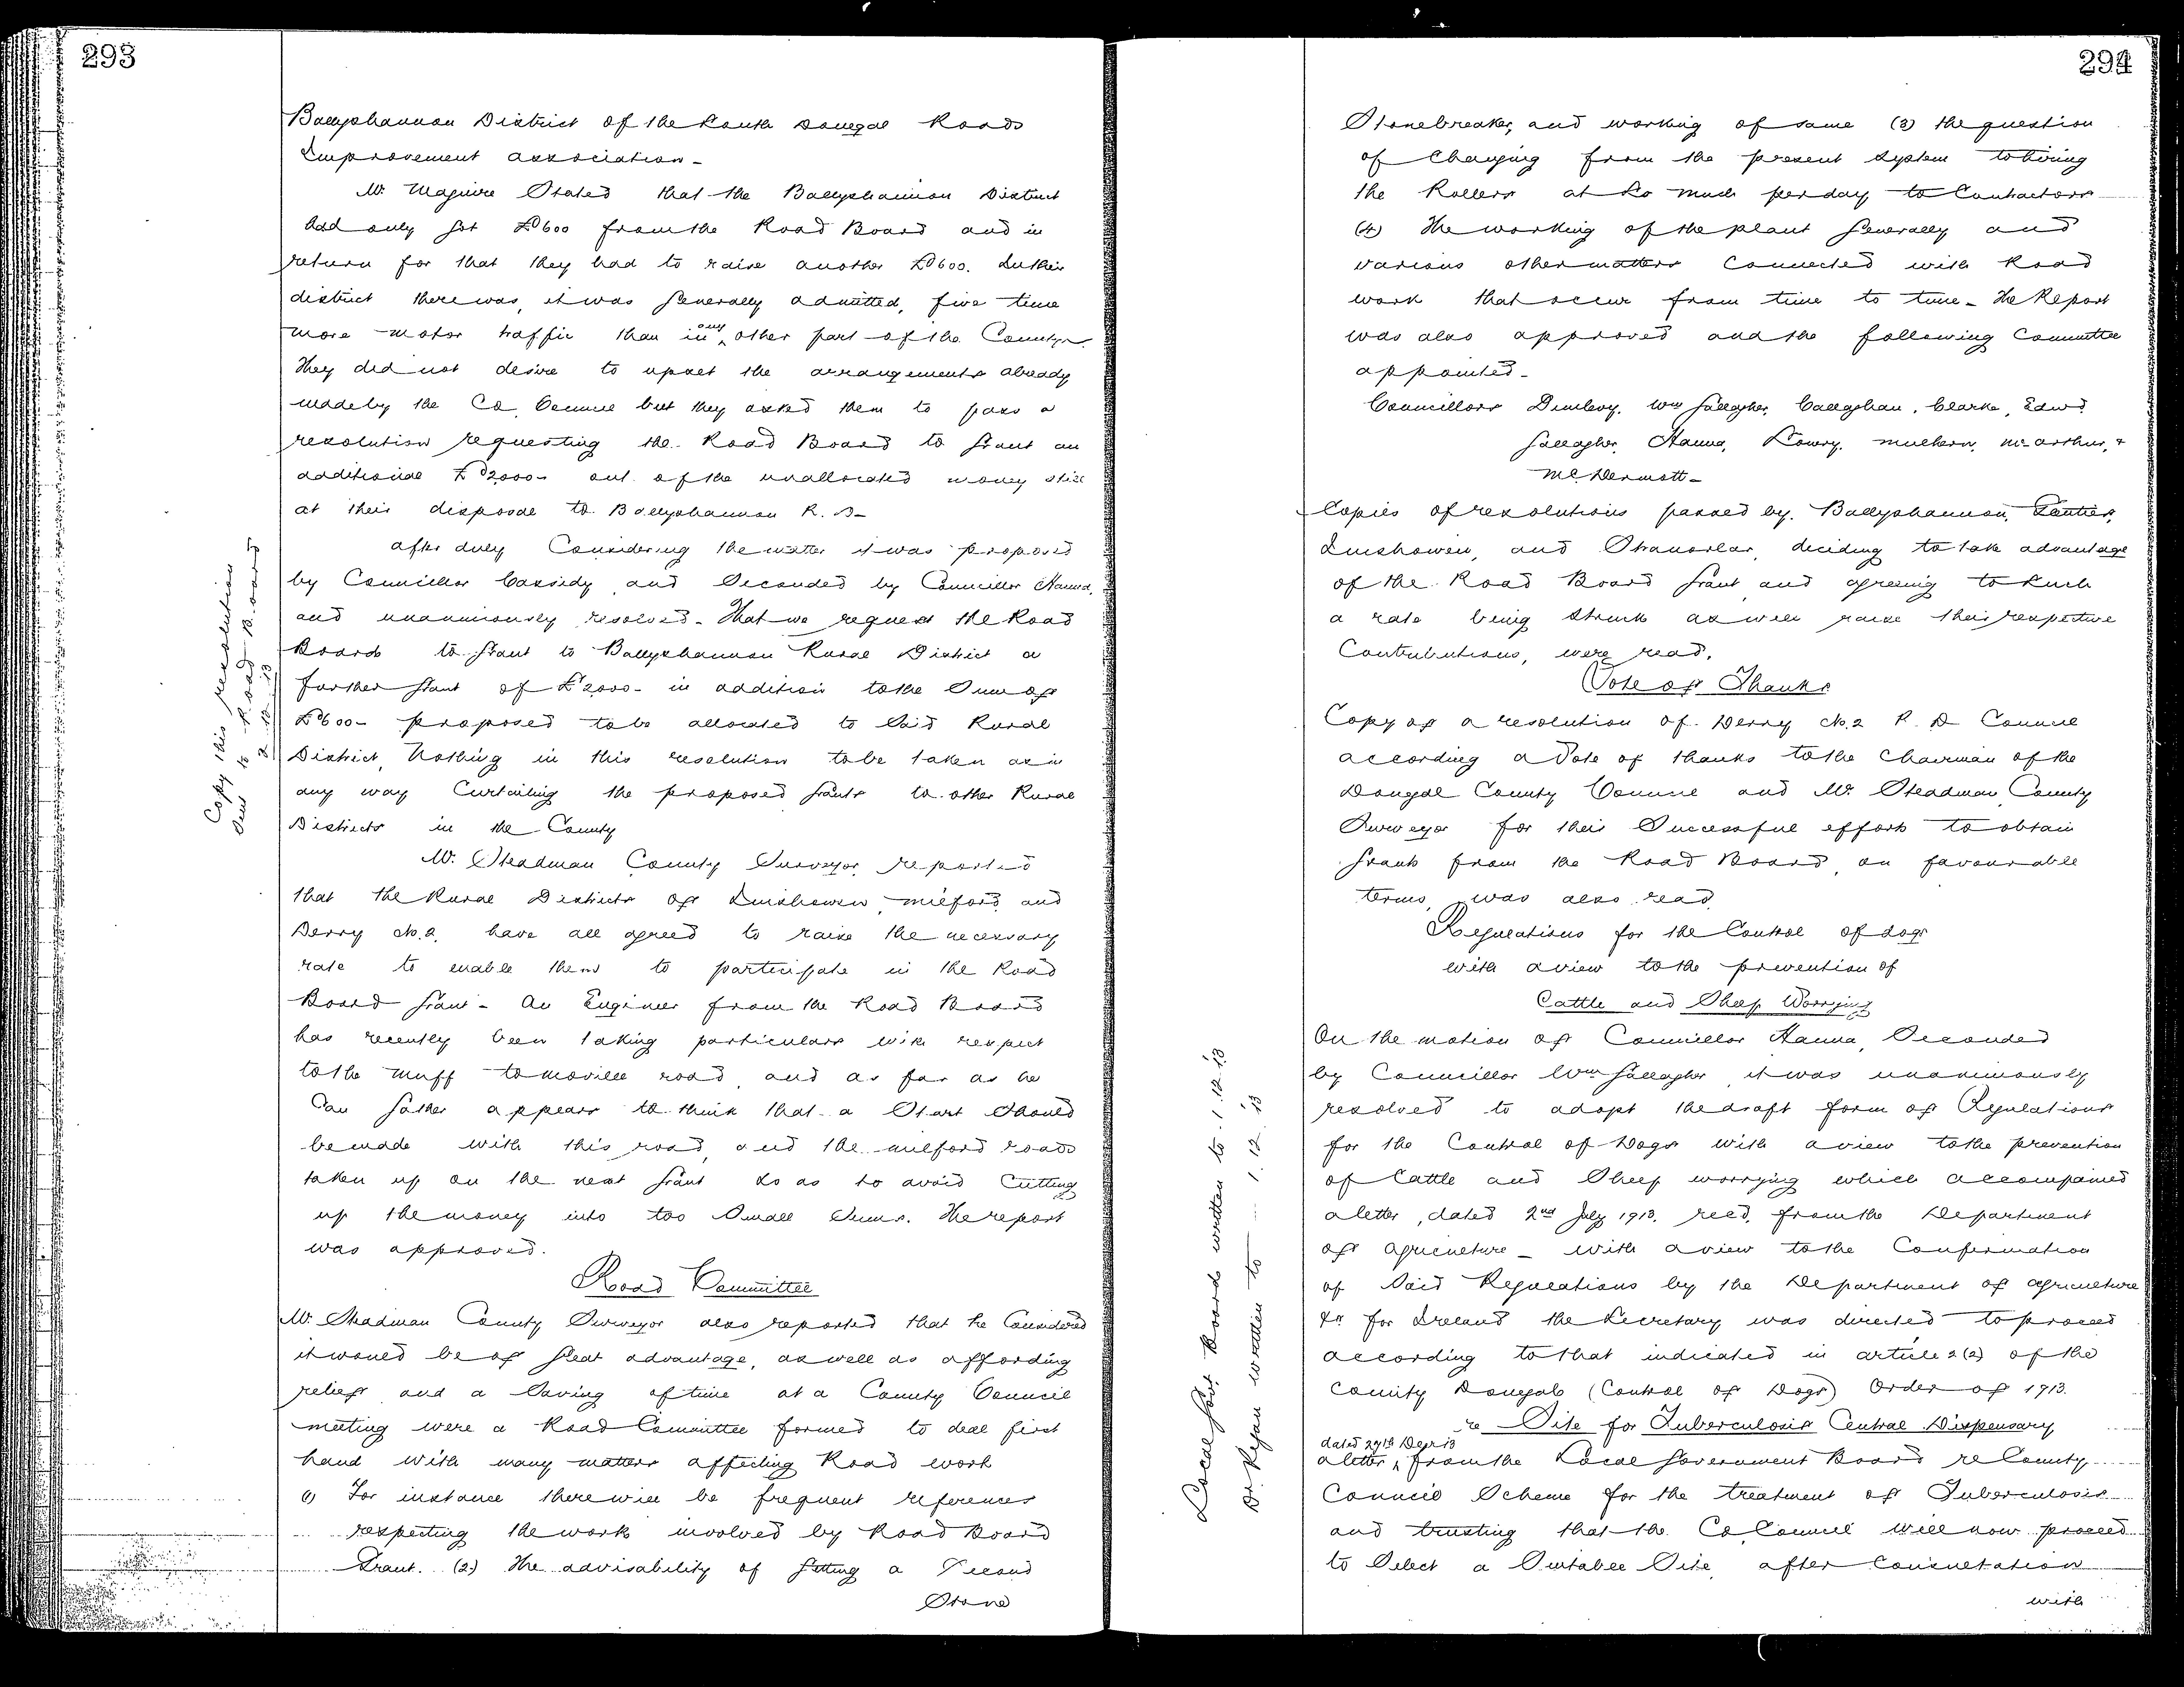 293
Ballyshannon District of the South Donegal Roads
Improvement association -
Mr. Maguire Stated that the Ballyshannon District
had only got £600 from the Road Board and in
return for that they had to raise another £600. In their
district there was, it was generally admitted, five time
more motor traffic than in any other part of the County.
They did not desire to upset the arrangements already
made by the Co. Council but they asked them to pass a
resolution requesting the Road Board to grant an
additional £2000- out of the unallocated money still
at their disposal to Ballyshannon R. D-
after duly Considering the matter it was proposed
by Councillor Cassidy and Seconded by Councillor Hanna,
and unanimously resolved - That we request the Road
Board to grant to Ballyshannon Rural District a
further grant of £2000- in addition to the Sum of
£600- proposed to be allocated to Said Rural
District, Nothing in this resolution to be taken as in
any way Curtailing the proposed grants to other Rural
Districts in the County
Copy this resolution
Sent to Road Board
2.12.13
Mr. Steadman County Surveyor reported
that the Rural Districts of Inishowen, Milford and
Derry No. 2. have all agreed to raise the necessary
rate to enable them to participate in the Road
Board grant - An Engineer from the Road Board
has recently been taking particulars with respect
to the Muff to Moville road, and as far as he
Can gather appears to think that a Start Should
be made with this road, and the Milford roads
taken up on the next grant so as to avoid Cutting
up the money into too Small Sums. The report
was approved.
Road Committee
Mr. Steadman County Surveyor also reported that he Considered
it would be of great advantage, as well as affording
relief and a Saving of time at a County Council
meeting were a Road Committee formed to deal first
hand with many matters affecting Road work
(1) For instance there will be frequent references
respecting the work involved by Road Board
Grant. (2) The advisability of getting a Second
Stone
294
Stonebreaker, and working of same (3) the question
of Changing from the present System to hiring
the Rollers at So much per day to Contractors
(4) The working of the plant generally and
various other matters Connected with Road
work that occur from time to time - The Report
was also approved and the following Committee
appointed -
Councillors Dunlevy, Wm Gallagher, Callaghan, Clarke, Edwd
Gallagher, Hanna, Lowry, Mulhern, McArthur, &
McDermott -
Copies of resolutions passed by Ballyshannon,
Inishowen, and Stranorlar, deciding to take advantage
of the Road Board Grant and agreeing to Such
a rate being Struck as will raise their respective
Contributions, were read.
Vote of Thanks
Copy of a resolution of Derry No. 2 R. D Council
according a Vote of thanks to the Chairman of the
Donegal County Council and Mr. Steadman County
Surveyor for their Successful efforts to obtain
grants from the Road Board on favourable
terms, was also read.
Regulations for the Control of dogs
with a view to the prevention of
Cattle and Sheep Worrying
On the motion of Councillor Hanna, Seconded
by Councillor Wm Gallagher it was unanimously
resolved to adopt the draft form of Regulations
for the Control of Dogs with a view to the prevention
of Cattle and Sheep worrying which accompanied
a letter, dated 2nd July 1913. recd. from the Department
of agriculture - With a view to the Confirmation
of Said Regulations by the Department of agriculture
&c for Ireland the Secretary was directed to proceed
according to that indicated in article 2(2) of the
County Donegal (Control of Dogs) Order of 1913.
re Site for Tuberculosis Central Dispensary
Local Govt. Board written to 1.12.13.
Dr. Ryan written to 1.12.13
a letter, dated from the Local Government Board re County
Council Scheme for the treatment of Tuberculosis
and trusting that the Co Council will now proceed
to Select a Suitable Site, after Consultation
with